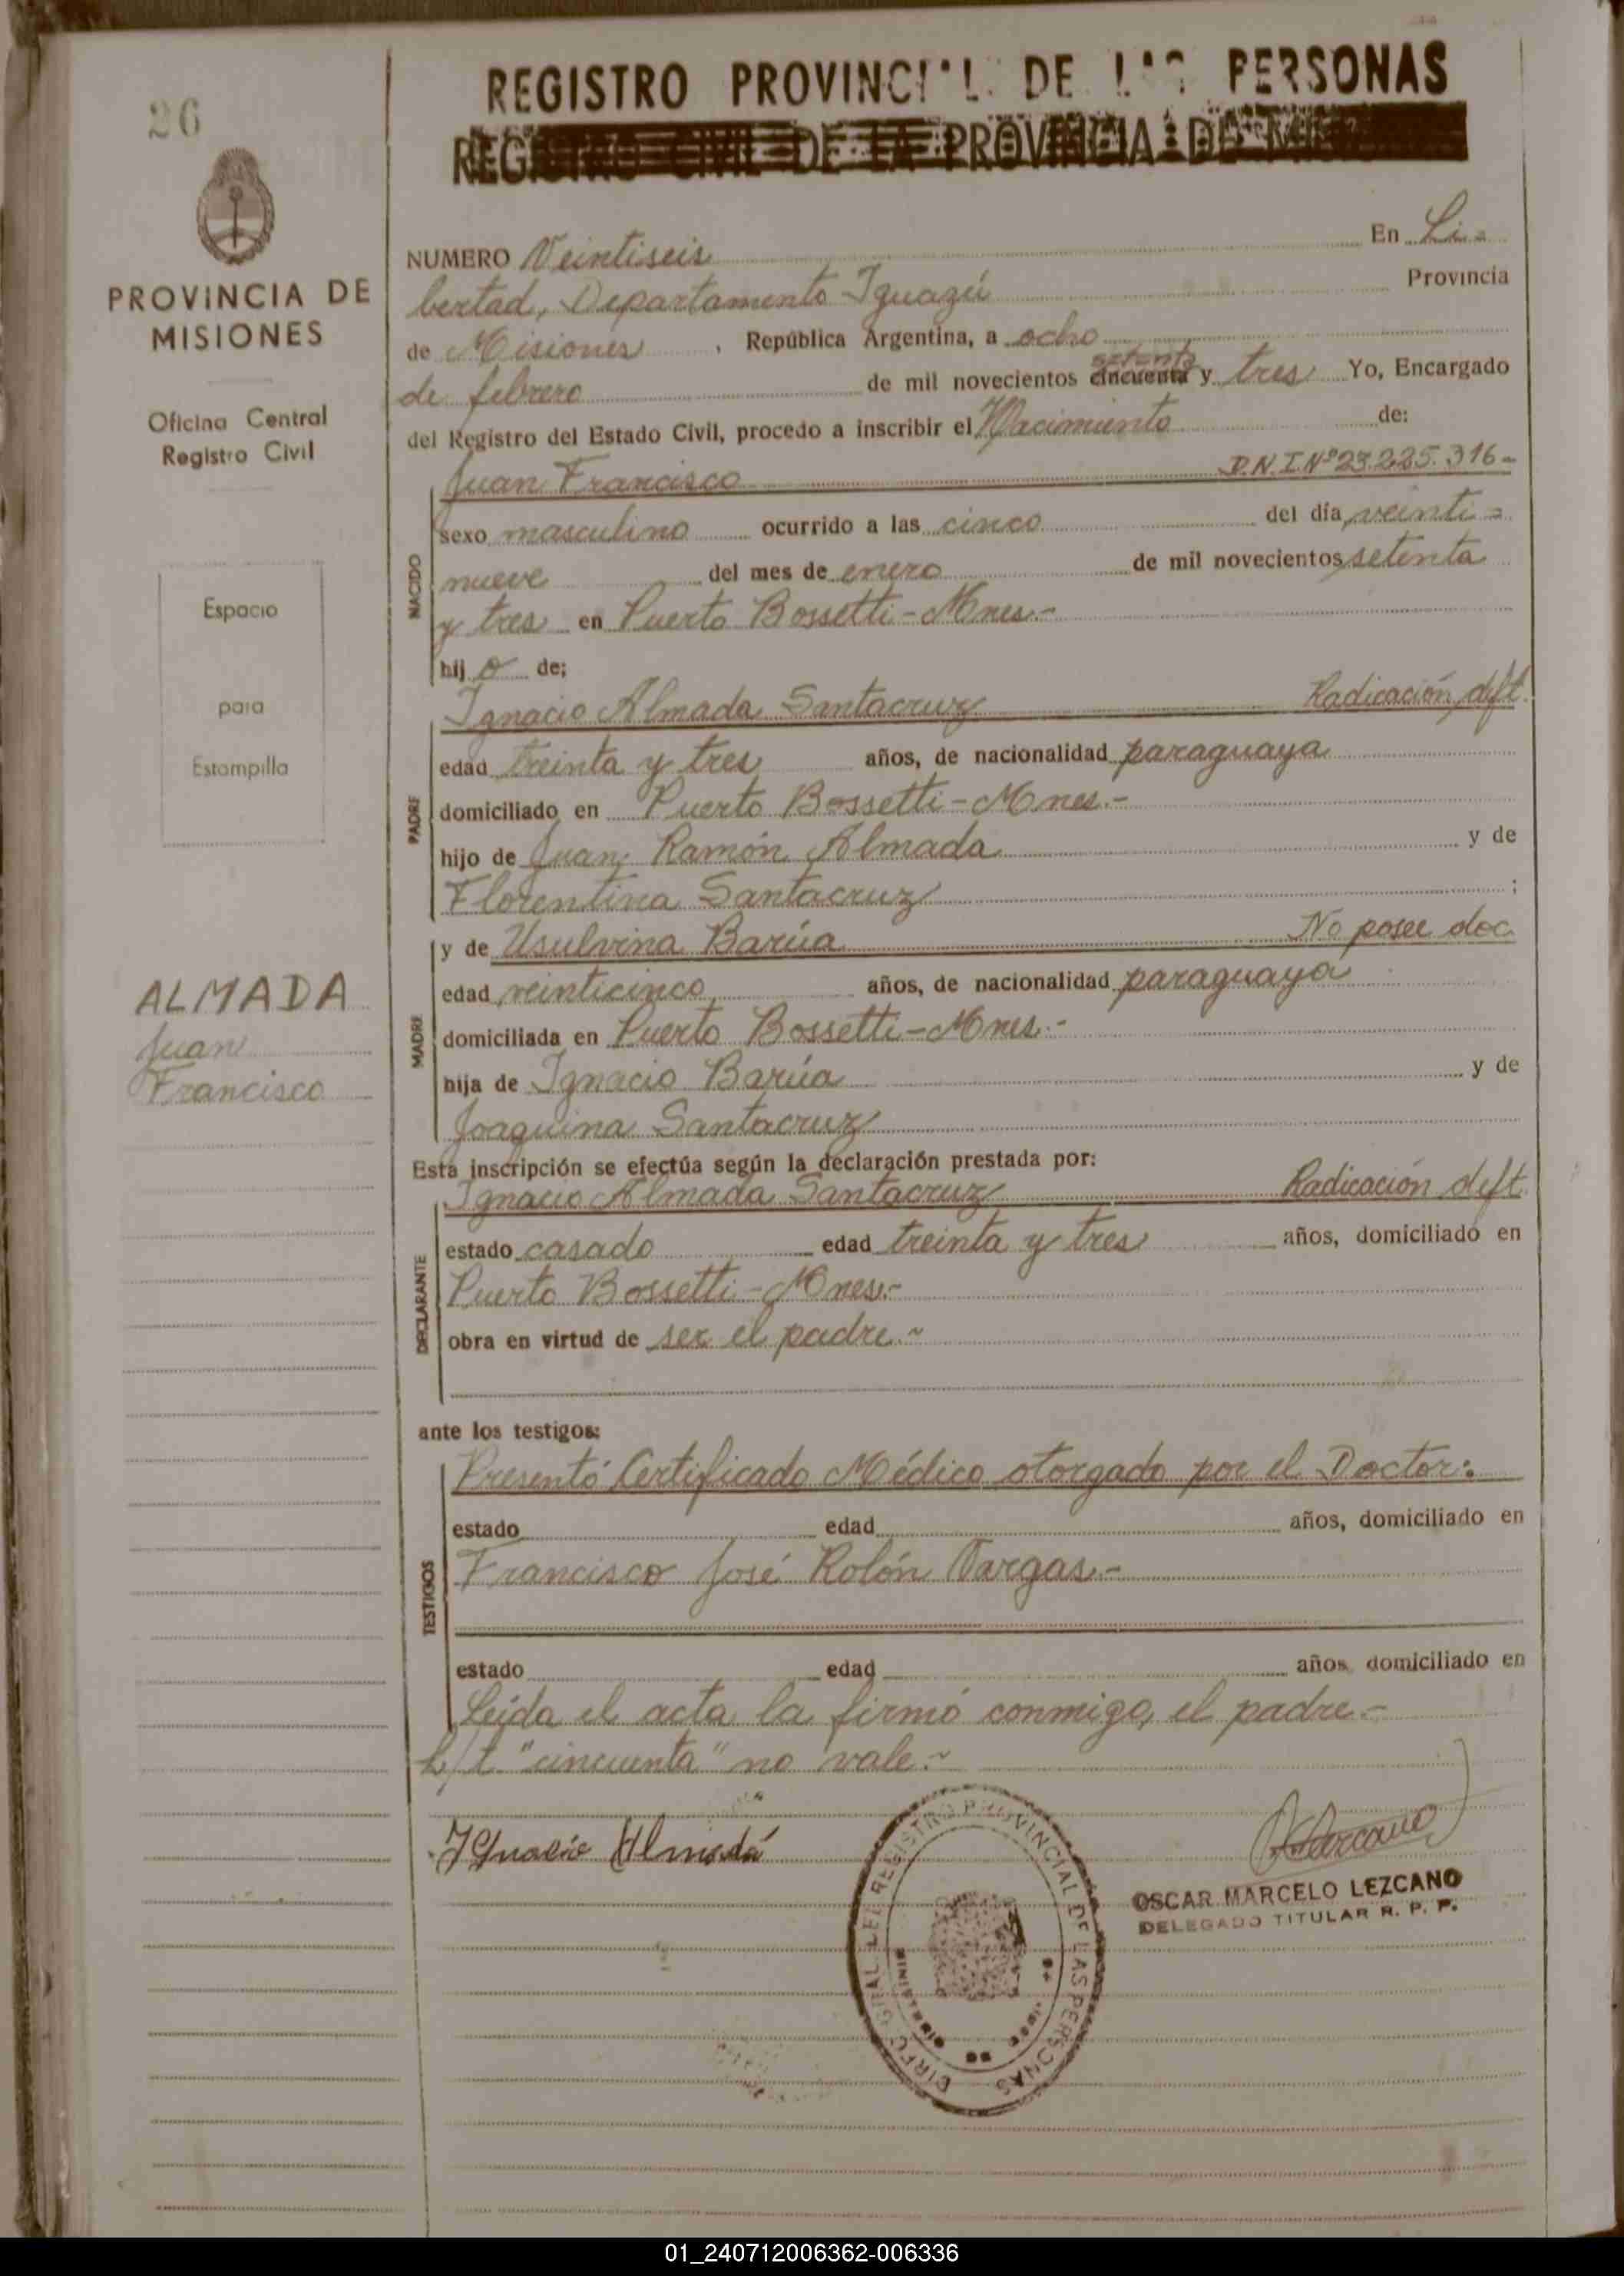 26
PROVINCIA DE
MISIONES
Oficina Central
Registro Civil
Espacio
para
Estampilla
ALMADA
Juan
Francisco
REGISTRO PROVINCIAL DE LAS PERSONAS
REGISTRO CIVIL DE LA PROVINCIA DE
NUMERO Veintiseis En Li=
bertad, Departamento Iguazú Provincia
de Misiones, República Argentina, a ocho
de febrero de mil novecientos cincuenta setenta y tres Yo, Encargado
del Registro del Estado Civil, procedo a inscribir el Nacimiento de:
Juan Francisco D.N.I.Nº 23.225.316-
NACIDO
sexo masculino ocurrido a las cinco del día veinti=
nueve del mes de enero de mil novecientos setenta
y tres en Puerto Bossetti-Mnes.-
hijo de;
Ignacio Almada Santacruz Radicación deft.
PADRE
edad treinta y tres años, de nacionalidad paraguaya
domiciliado en Puerto Bossetti-Mnes.-
hijo de Juan Ramón Almada y de
Florentina Santacruz ;
y de Usulvina Barúa No posee doc
MADRE
edad veinticinco años, de nacionalidad paraguaya
domiciliada en Puerto Bossetti-Mnes.-
hija de Ignacio Barúa y de
Joaquina Santacruz
Esta inscripción se efectúa según la declaración prestada por:
Ignacio Almada Santacruz Radicación deft.
DECLARANTE
estado casado edad treinta y tres años, domiciliado en
Puerto Bossetti-Mnes.-
obra en virtud de ser el padre.~
ante los testigos:
Presentó Certificado Médico otorgado por el Doctor:
TESTIGOS
estado edad años, domiciliado en
Francisco José Rolón Vargas.-
estado edad años domiciliado en
Leída el acta la firmó conmigo, el padre.-
L/t "cincuenta" no vale.~
IGnacio Almada
OSCAR MARCELO LEZCANO
DELEGADO TITULAR R. P. P.
REGISTRO PROVINCIAL DE LAS PERSONAS
01_240712006362-006336